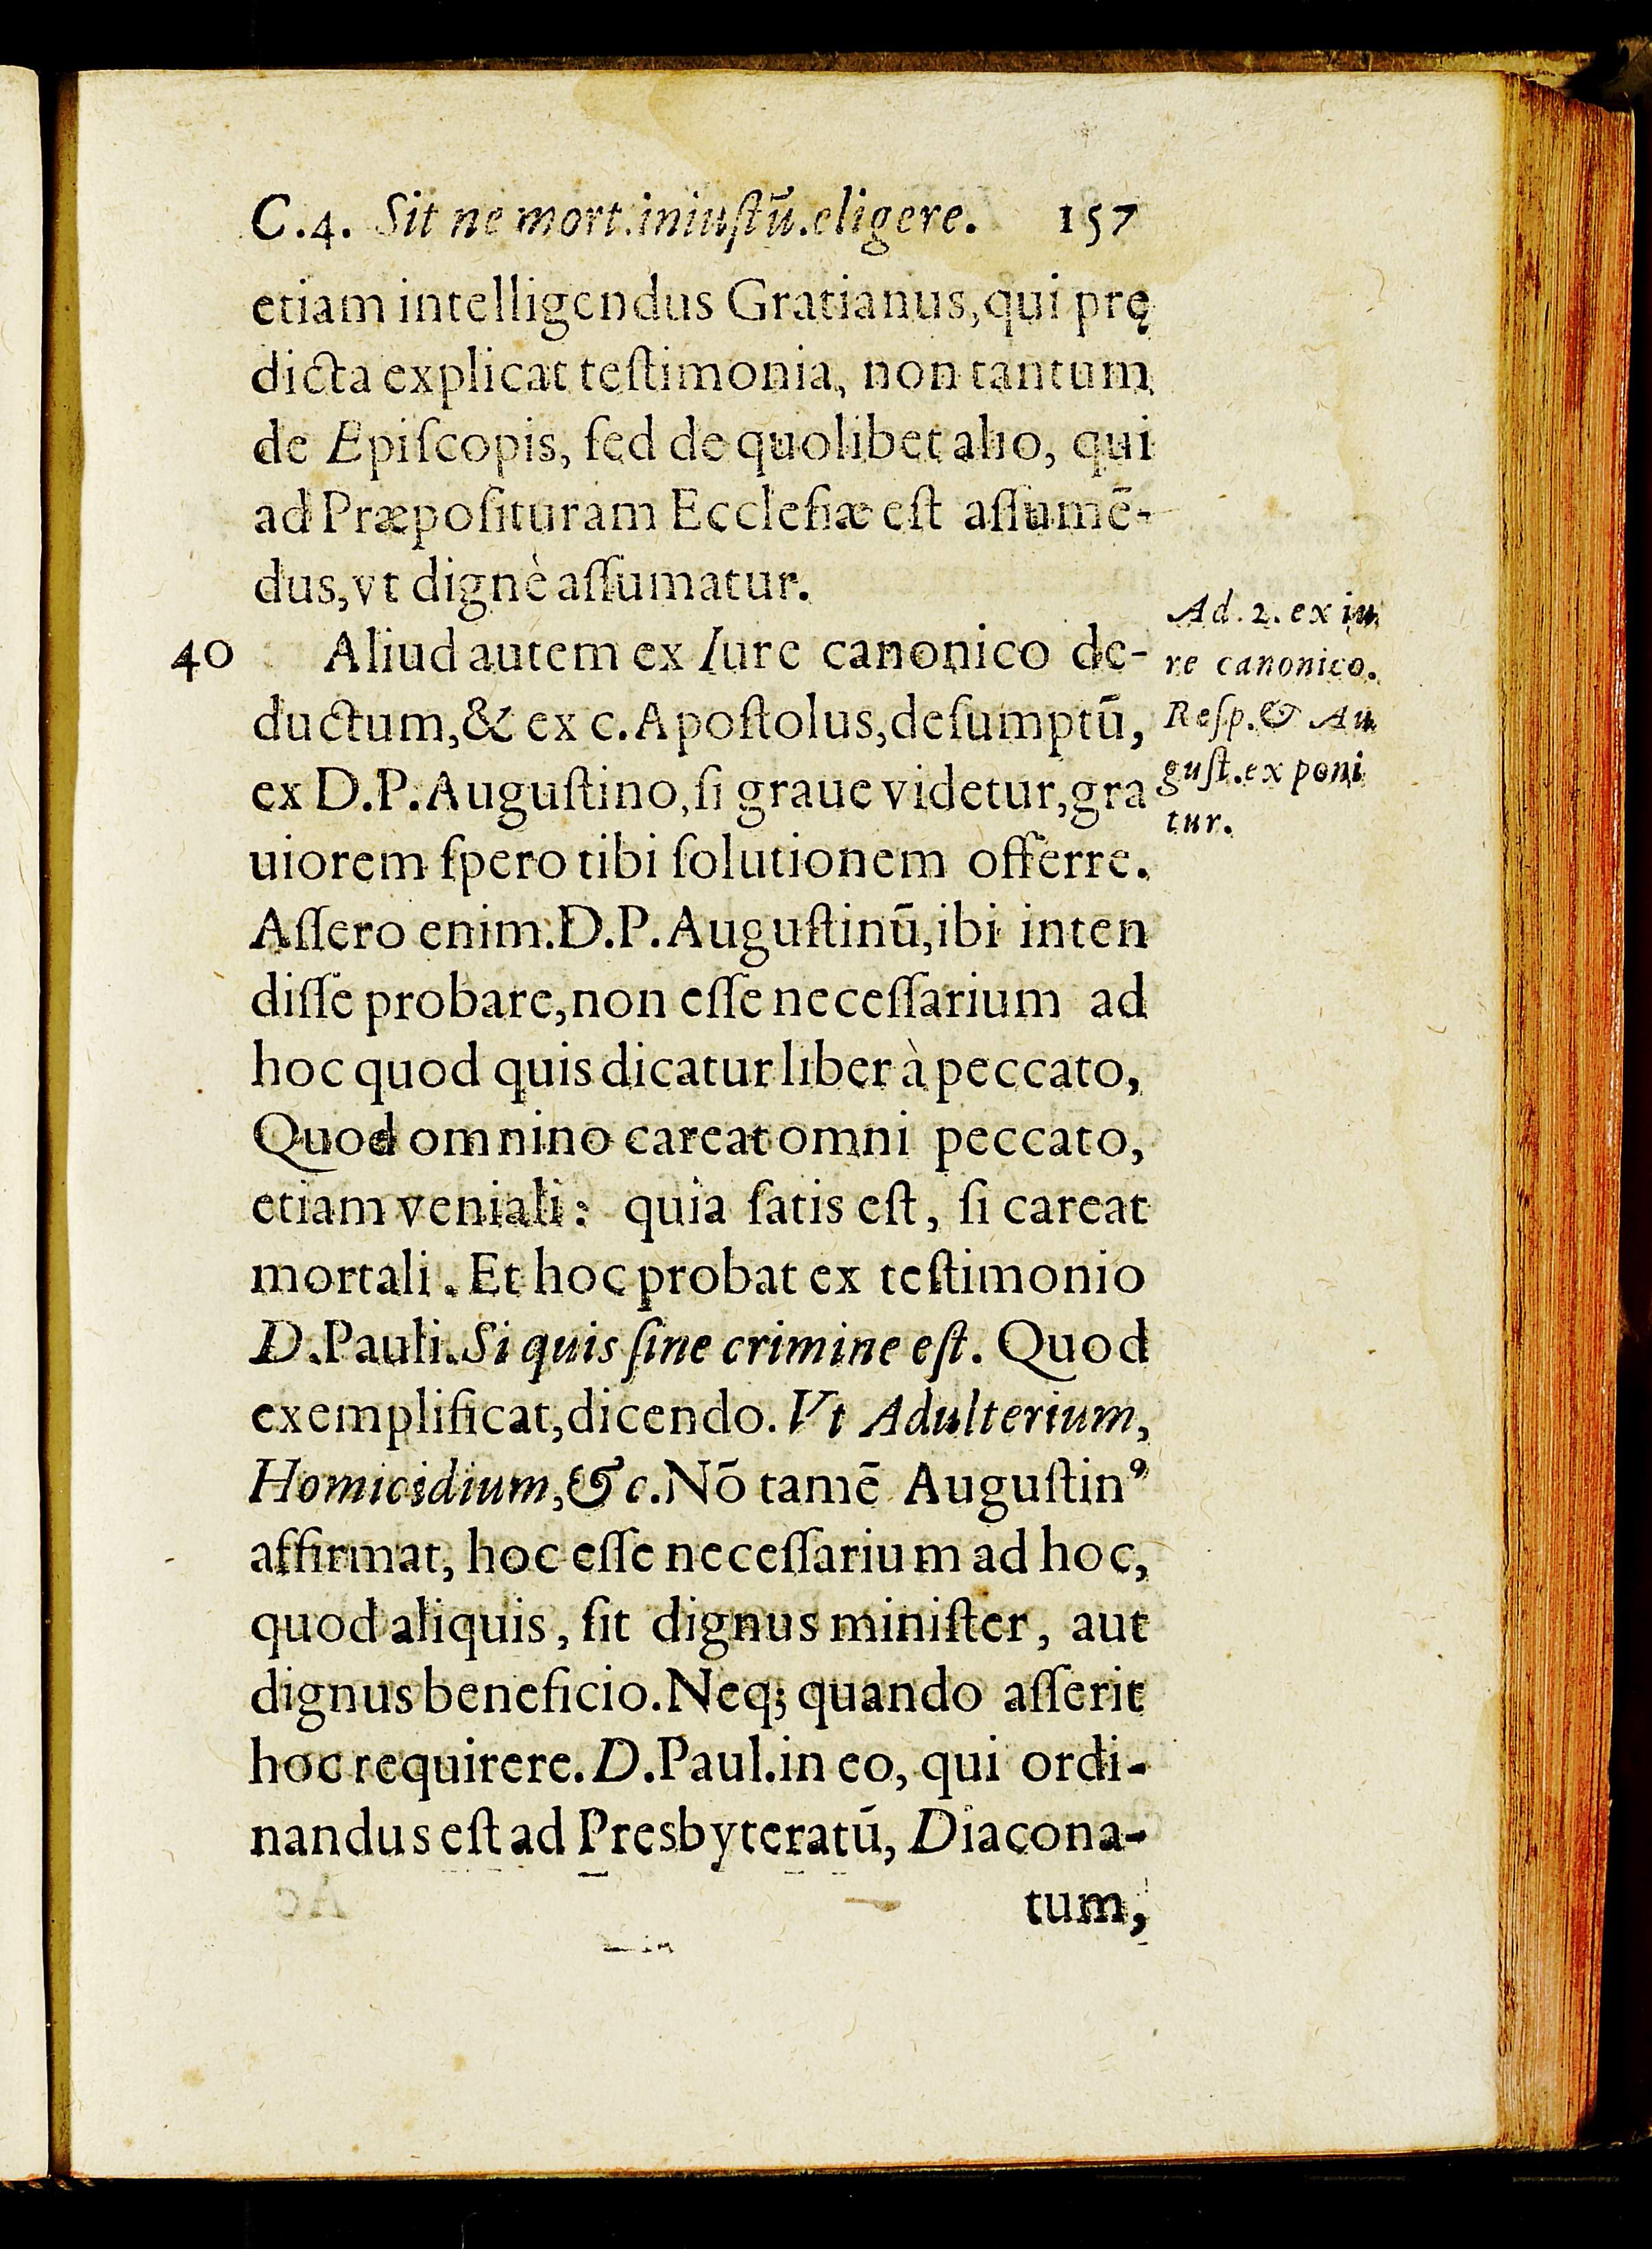 C.4. Sit ne mort.iniuſtū.eligere. 157
etiam intelligendus Gratianus,qui prę
dicta explicat teſtimonia, non tantum
de Epiſcopis, ſed de quolibet alio, qui
ad Præpoſituram Eccleſiæ eſt aſſumē-
dus,vt dignè aſſumatur.
40 Aliud autem ex Iure canonico de-
ductum,& ex c.Apoſtolus,deſumptū,
ex D.P.Auguſtino,ſi graue videtur,gra
uiorem ſpero tibi ſolutionem offerre.
Aſſero enim.D.P.Auguſtinū,ibi inten
diſſe probare,non eſſe neceſſarium ad
hoc quod quis dicatur liber à peccato,
Quod omnino careat omni peccato,
etiam veniali: quia ſatis eſt, ſi careat
mortali. Et hoc probat ex teſtimonio
D.Pauli.Si quis ſine crimine eſt. Quod
exemplificat,dicendo. Vt Adulterium,
Homicidium,&c.Nō tamē Auguſtinꝰ
affirmat, hoc eſſe neceſſarium ad hoc,
quod aliquis, ſit dignus miniſter, aut
dignus beneficio.Neq; quando aſſerit
hoc requirere.D.Paul.in eo, qui ordi-
nandus eſt ad Presbyteratū, Diacona-
tum,
Ad.2. ex iu
re canonico.
Reſp.& Au
guſt.exponi
tur.